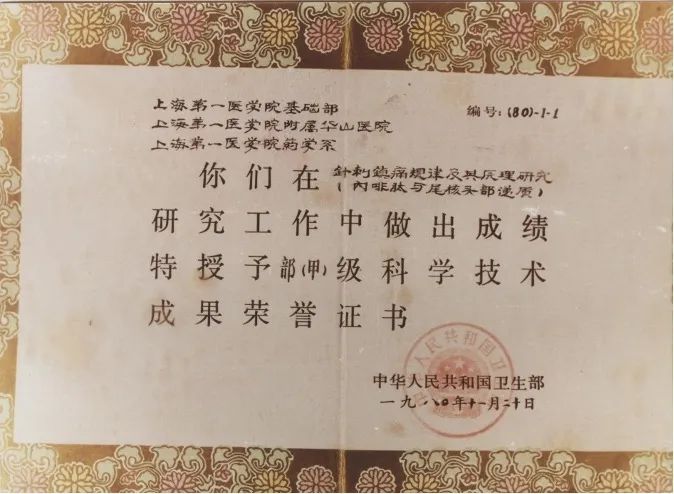 上海第一医学院基础部
编号：(80)-1-1
上海第一医学院附属华山医院
上海第一医学院药学系
你们在 針刺鎮痛規律及其原理研究
（内啡肽与尾核头部递质）
研究工作中做出成绩
特授予部(甲)级科学技术
成果荣誉证书
中华人民共和国卫生部
一九八〇年十一月二十日